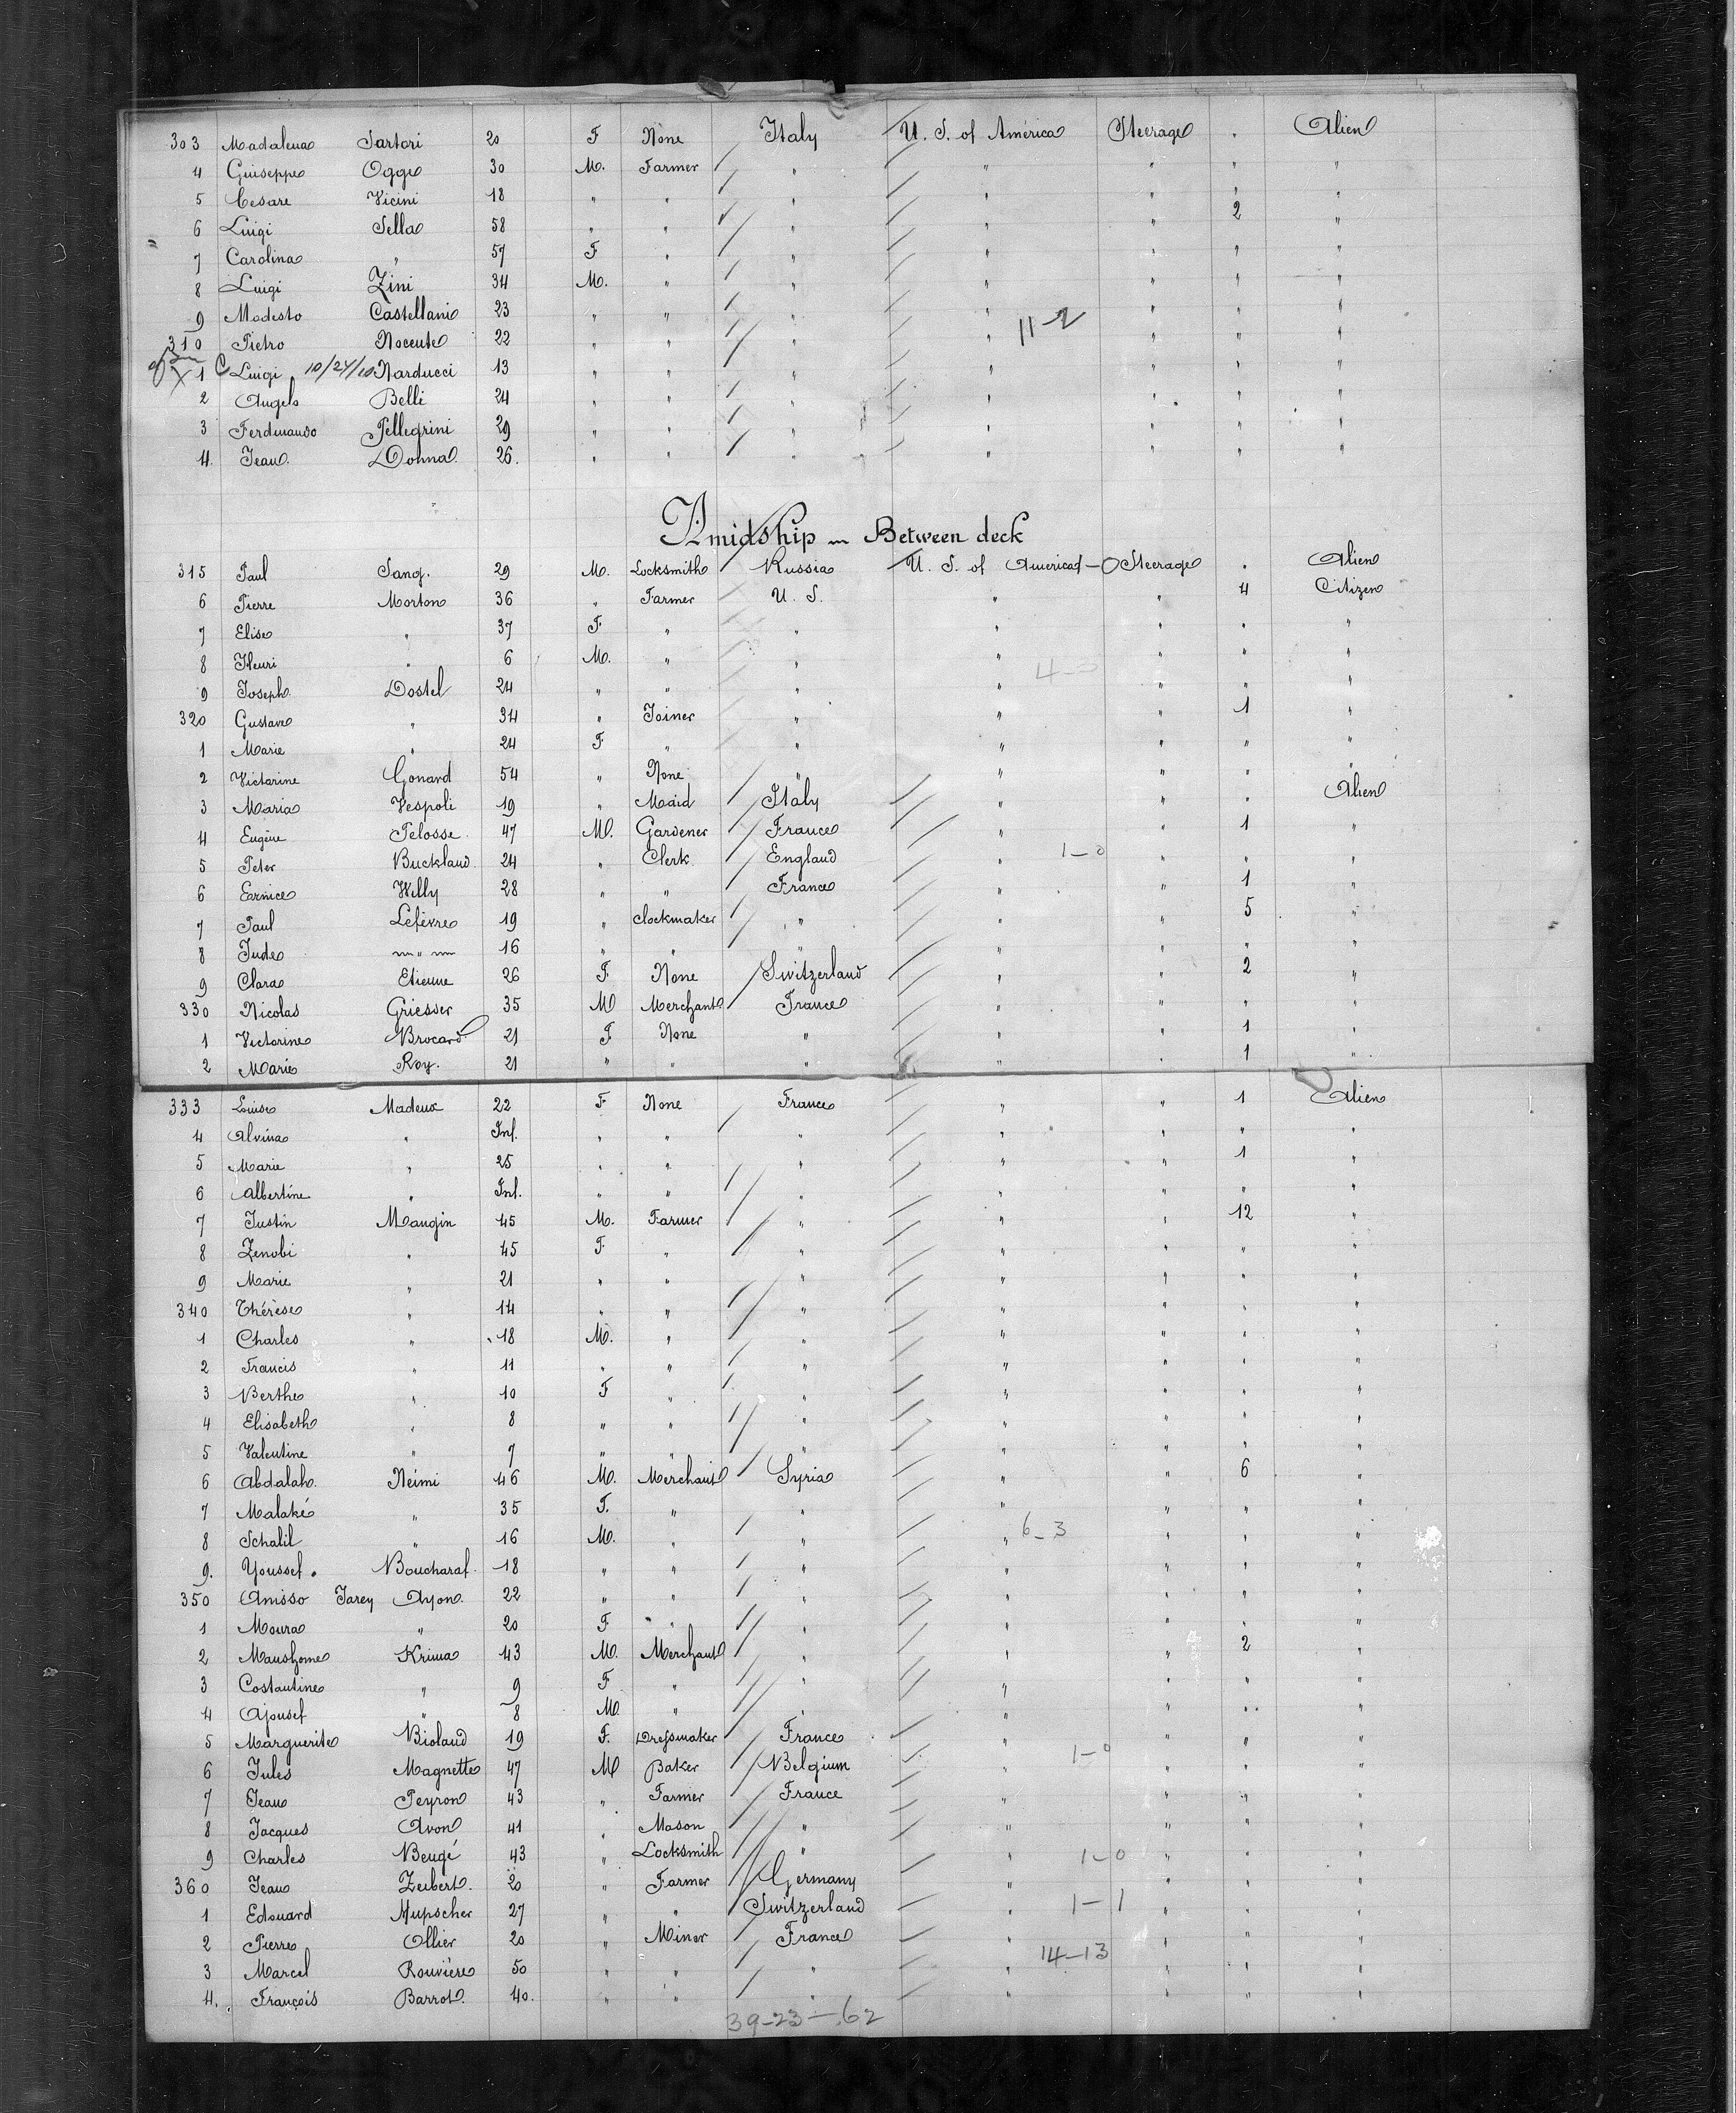 303 Madalena Sartori 20 F None Italy U. S. of América Steerage " Alien
4 Guiseppe Ogge 30 M. Farmer " " " " "
5 Cesare Vicini 18 " " " " " " "
6 Luigi Sella 58 " " " " " 2 "
7 Carolina " 57 F " " " " " "
8 Luigi Zini 34 M. " " " " " "
9 Modesto Castellani 23 " " " " " " "
310 Pietro Nocente 22 " " " " 11-2 " " "
X 1 C Luigi 10/24/10 Narducci 13 " " " " " " "
2 Angelo Belli 24 " " " " " " "
3 Ferdinando Pellegrini 29 " " " " " " "
4. Jean Donna 26. " " " " " " "
Amidship Between deck
315 Paul Sang. 29 M. Locksmith Russia U. S. of America 1-0 Steerage " Alien
6 Pierre Morton 36 " Farmer U. S. " " 4 Citizen
7 Elise " 37 F. " " " " " "
8 Henri " 6 M. " " " " " "
9 Joseph Dostel 24 " " " " 4-0 " " "
320 Gustave " 34 " Joiner " " " 1 "
1 Marie " 24 F " " " " " "
2 Victorine Gonard 54 " None " " " " "
3 Maria Vespoli 19 " Maid Italy " " " Alien
4 Eugène Pelosse 47 M. Gardener France " " 1 "
5 Peter Buckland 24 " Clerk England " 1-0 " " "
6 Ernice Willy 28 " " France " " 1 "
7 Paul Lefèvre 19 " Clockmaker " " " 5 "
8 Jude " 16 " " " " " " "
9 Clara Etienne 26 F. None Switzerland " " 2 "
330 Nicolas Griesser 35 M Merchant France " " " "
1 Victorine Brocard 21 F None " " " 1 "
2 Marie Roy. 21 " " " " " 1 "
333 Louise Madeux 22 F None France " " 1 Alien
4 Alvina " Inf. " " " " " " "
5 Marie " 25 " " " " " 1 "
6 Albertine " Inf. " " " " " " "
7 Justin Mangin 45 M. Farmer " " " 12 "
8 Zenobi " 45 F. " " " " " "
9 Marie " 21 " " " " " " "
340 Thérèse " 14 " " " " " " "
1 Charles " 18 M. " " " " " "
2 Francis " 11 " " " " " " "
3 Berthe " 10 F " " " " " "
4 Elisabeth " 8 " " " " " " "
5 Valentine " 7 " " " " " " "
6 Abdalah Neimi 46 M. Merchant Syria " " 6 "
7 Malaké " 35 F. " " " " " "
8 Schalil " 16 M. " " " 6-3 " " "
9. Youssef Boucharaf 18 " " " " " " "
350 Anisso Farey Ayon 22 " " " " " " "
1 Moura " 20 F " " " " " "
2 Manshome Krima 43 M. Merchant " " " 2 "
3 Costantine " 9 F " " " " " "
4 Ajousef " 8 M " " " " " "
5 Marguerite Bioland 19 F. Dressmaker France " " " "
6 Jules Magnette 47 M Baker Belgium " 1-0 " " "
7 Jean Peyron 43 " Farmer France " " " "
8 Jacques Avon 41 " Mason " " " " "
9 Charles Beugé 43 " Locksmith " " 1-0 " " "
360 Jean Zeibert 20 " Farmer Germany " " " "
1 Edouard Hupscher 27 " " Switzerland " 1-1 " " "
2 Pierre Ollier 20 " Miner France " 14-13 " " "
3 Marcel Rouvière 50 " " " " " " "
4. François Barrot. 40. " " " " " " "
39-23-62